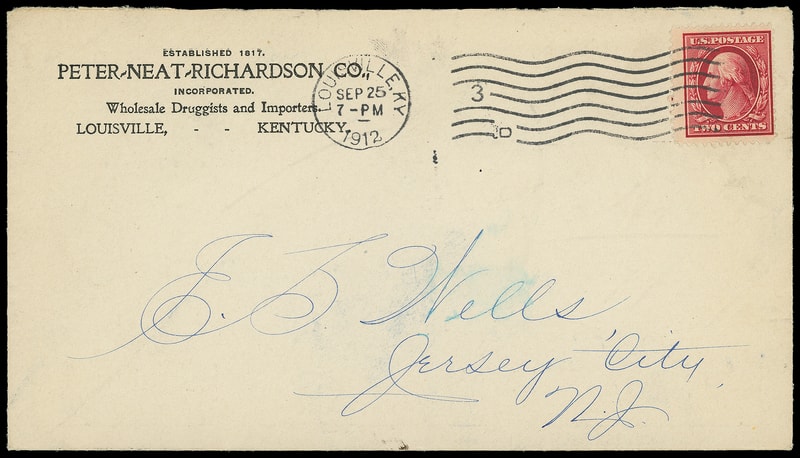 ESTABLISHED 1817.
PETER-NEAT-RICHARDSON CO.,
INCORPORATED.
Wholesale Druggists and Importers.
LOUISVILLE, - - KENTUCKY.
LOUISVILLE, KY
SEP 25
7-PM
1912
3
D
U.S. POSTAGE
TWO CENTS
E. S Wells
Jersey City
N.J.